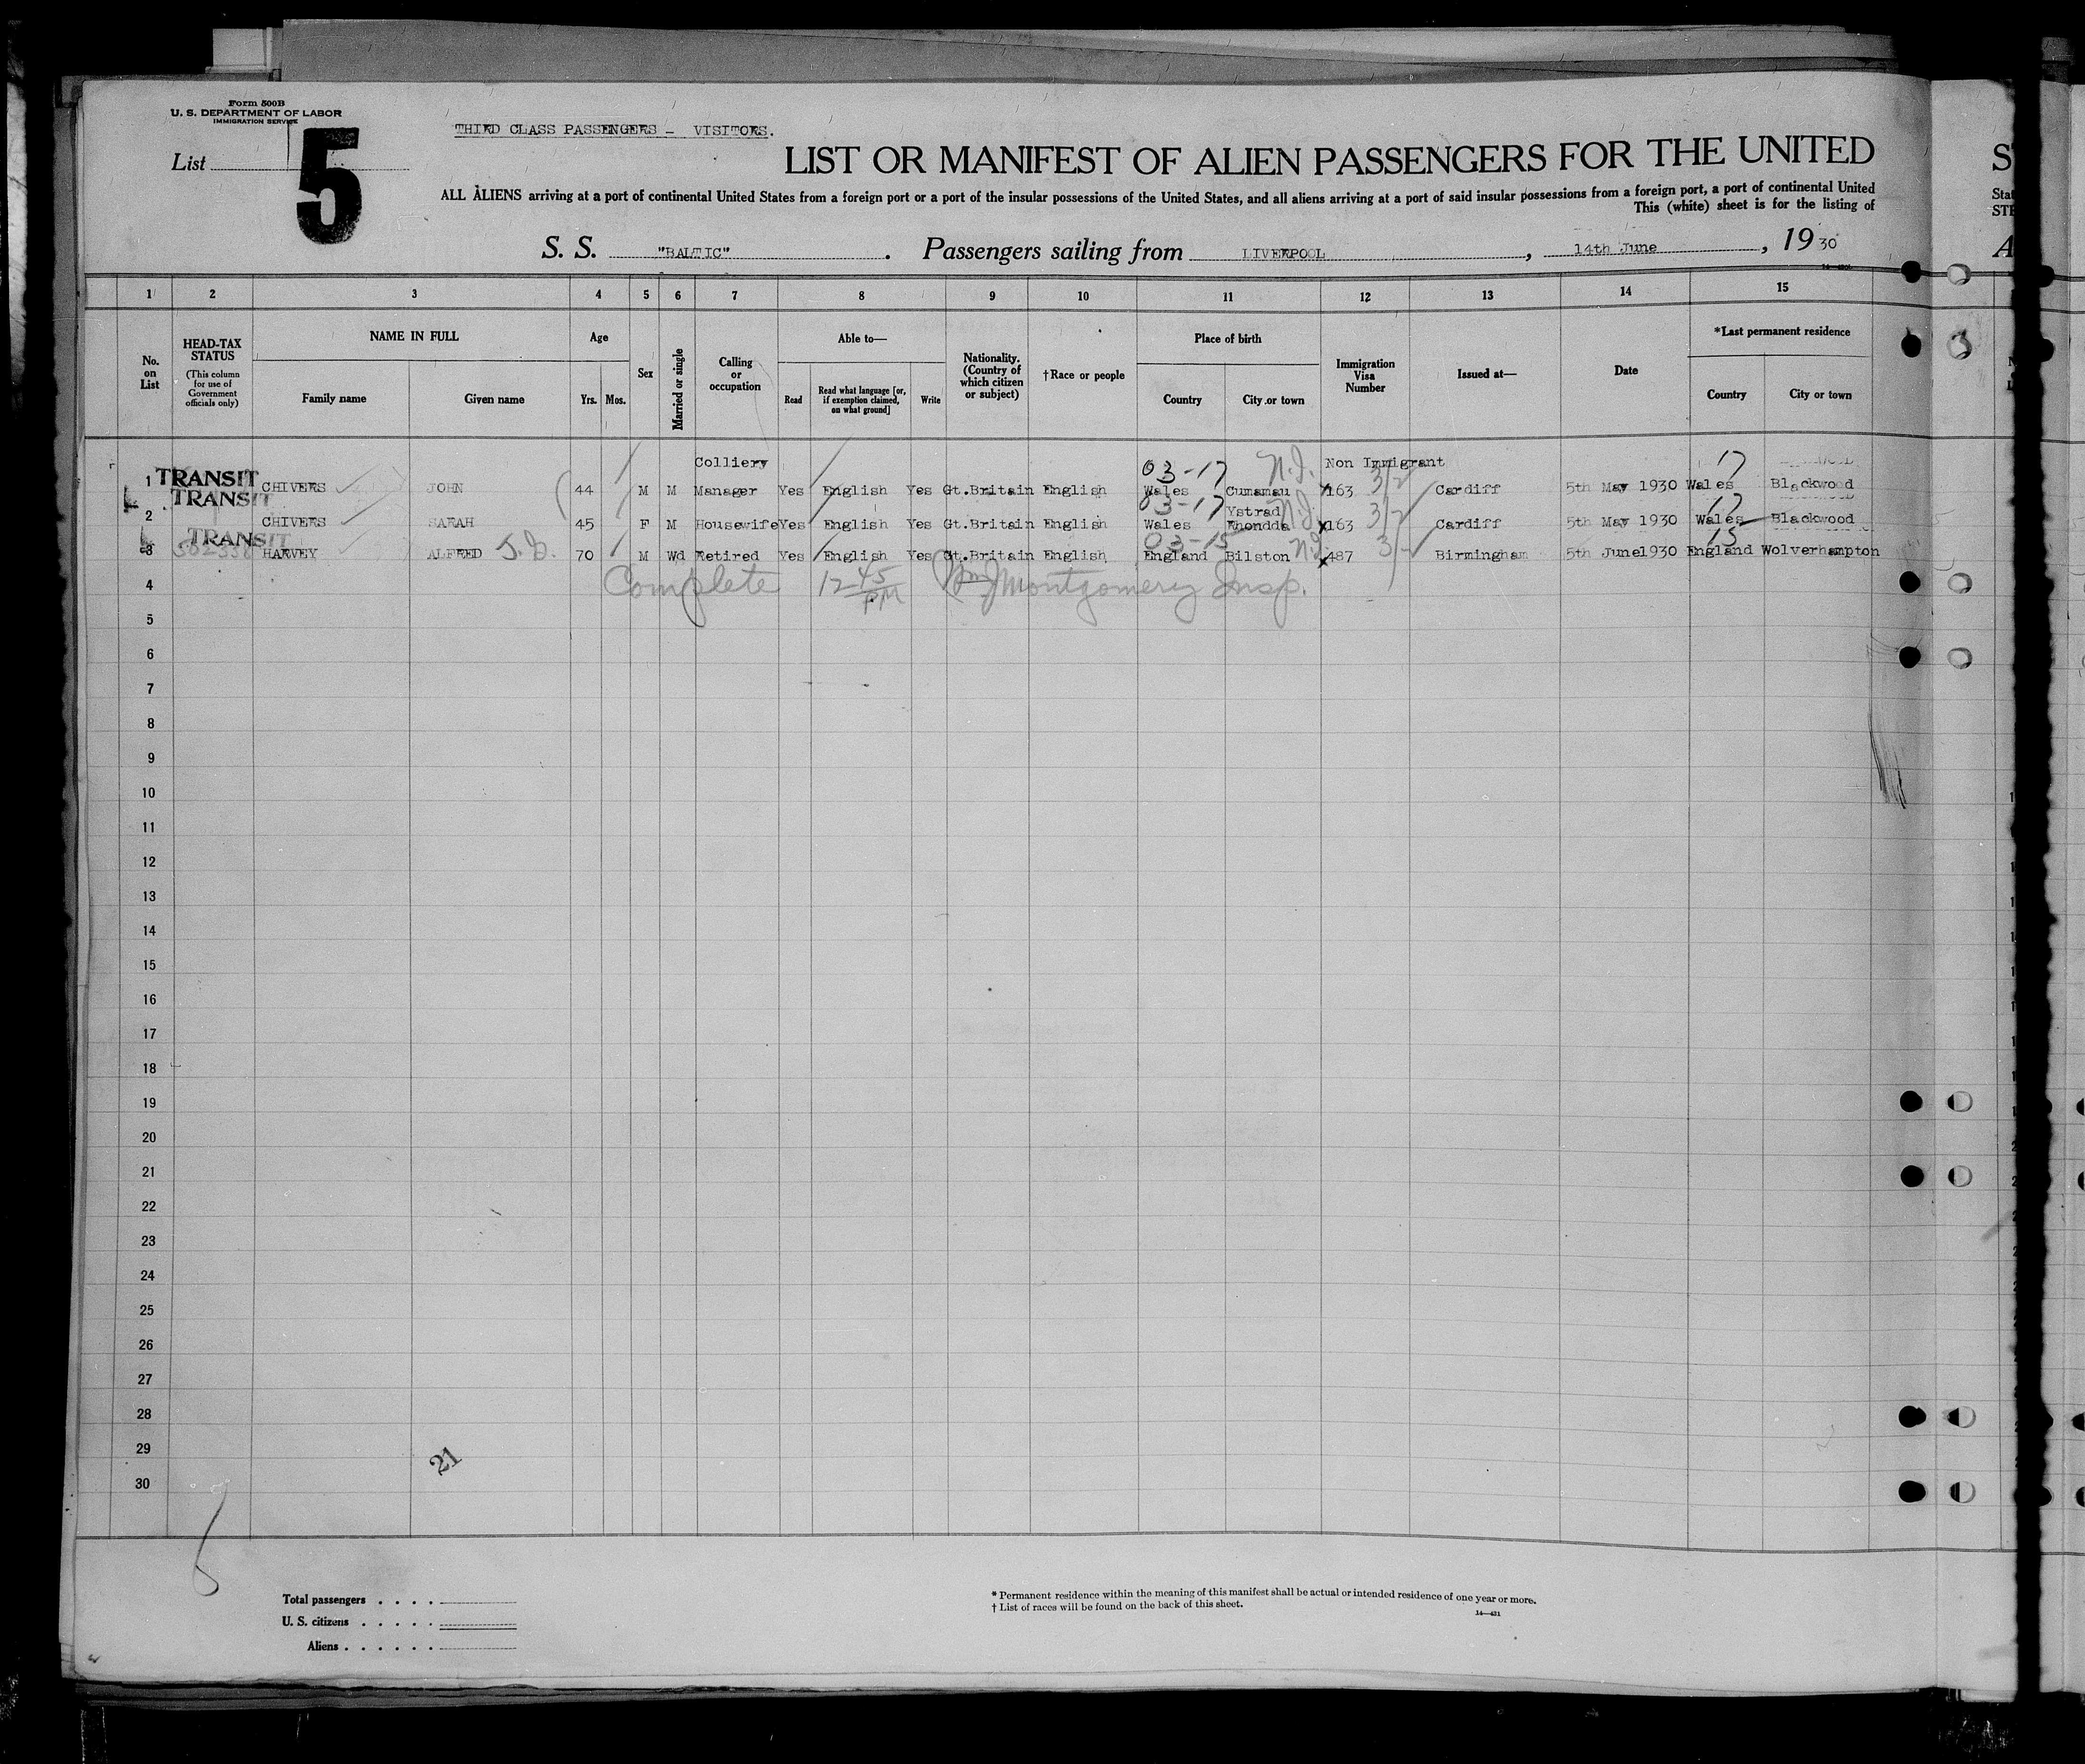 Form 500B
U. S. DEPARTMENT OF LABOR
IMMIGRATION SERVICE
List 5
THIRD CLASS PASSENGERS - VISITORS.
LIST OR MANIFEST OF ALIEN PASSENGERS FOR THE UNITED
ALL ALIENS arriving at a port of continental United States from a foreign port or a port of the insular possessions of the United States, and all aliens arriving at a port of said insular possessions from a foreign port, a port of continental United
This (white) sheet is for the listing of
S. S. "BALTIC". Passengers sailing from LIVERPOOL, 14th June, 1930
1 2 3 4 5 6 7 8 9 10 11 12 13 14 15
No. on List
HEAD-TAX STATUS
(This column for use of Government officials only)
NAME IN FULL
Family name Given name
Age
Yrs. Mos.
Sex
Married or single
Calling or occupation
Able to—
Read
Read what language [or, if exemption claimed, on what ground]
Write
Nationality. (Country of which citizen or subject)
†Race or people
Place of birth
Country City or town
Immigration Visa Number
Issued at—
Date
*Last permanent residence
Country City or town
Colliery 03-17 N.I. Non Immigrant 17
1 TRANSIT CHIVERS JOHN 44 M M Manager Yes English Yes Gt.Britain English Wales Cumanau 163 3/2 Cardiff 5th May 1930 Wales Blackwood
TRANSIT 03-17 Ystrad N.I. 17
2 CHIVERS SARAH 45 F M Housewife Yes English Yes Gt.Britain English Wales Rhondda 163 3/2 Cardiff 5th May 1930 Wales Blackwood
TRANSIT 03-15 N.I. 15
3 HARVEY ALFRED 70 M Wd Retired Yes English Yes Gt.Britain English England Bilston 487 Birmingham 5th June1930 England Wolverhampton
4 Complete 12 45 PM Montgomery Insp.
5
6
7
8
9
10
11
12
13
14
15
16
17
18
19
20
21
22
23
24
25
26
27
28
29
21
30
Total passengers
U. S. citizens
Aliens
* Permanent residence within the meaning of this manifest shall be actual or intended residence of one year or more.
† List of races will be found on the back of this sheet.